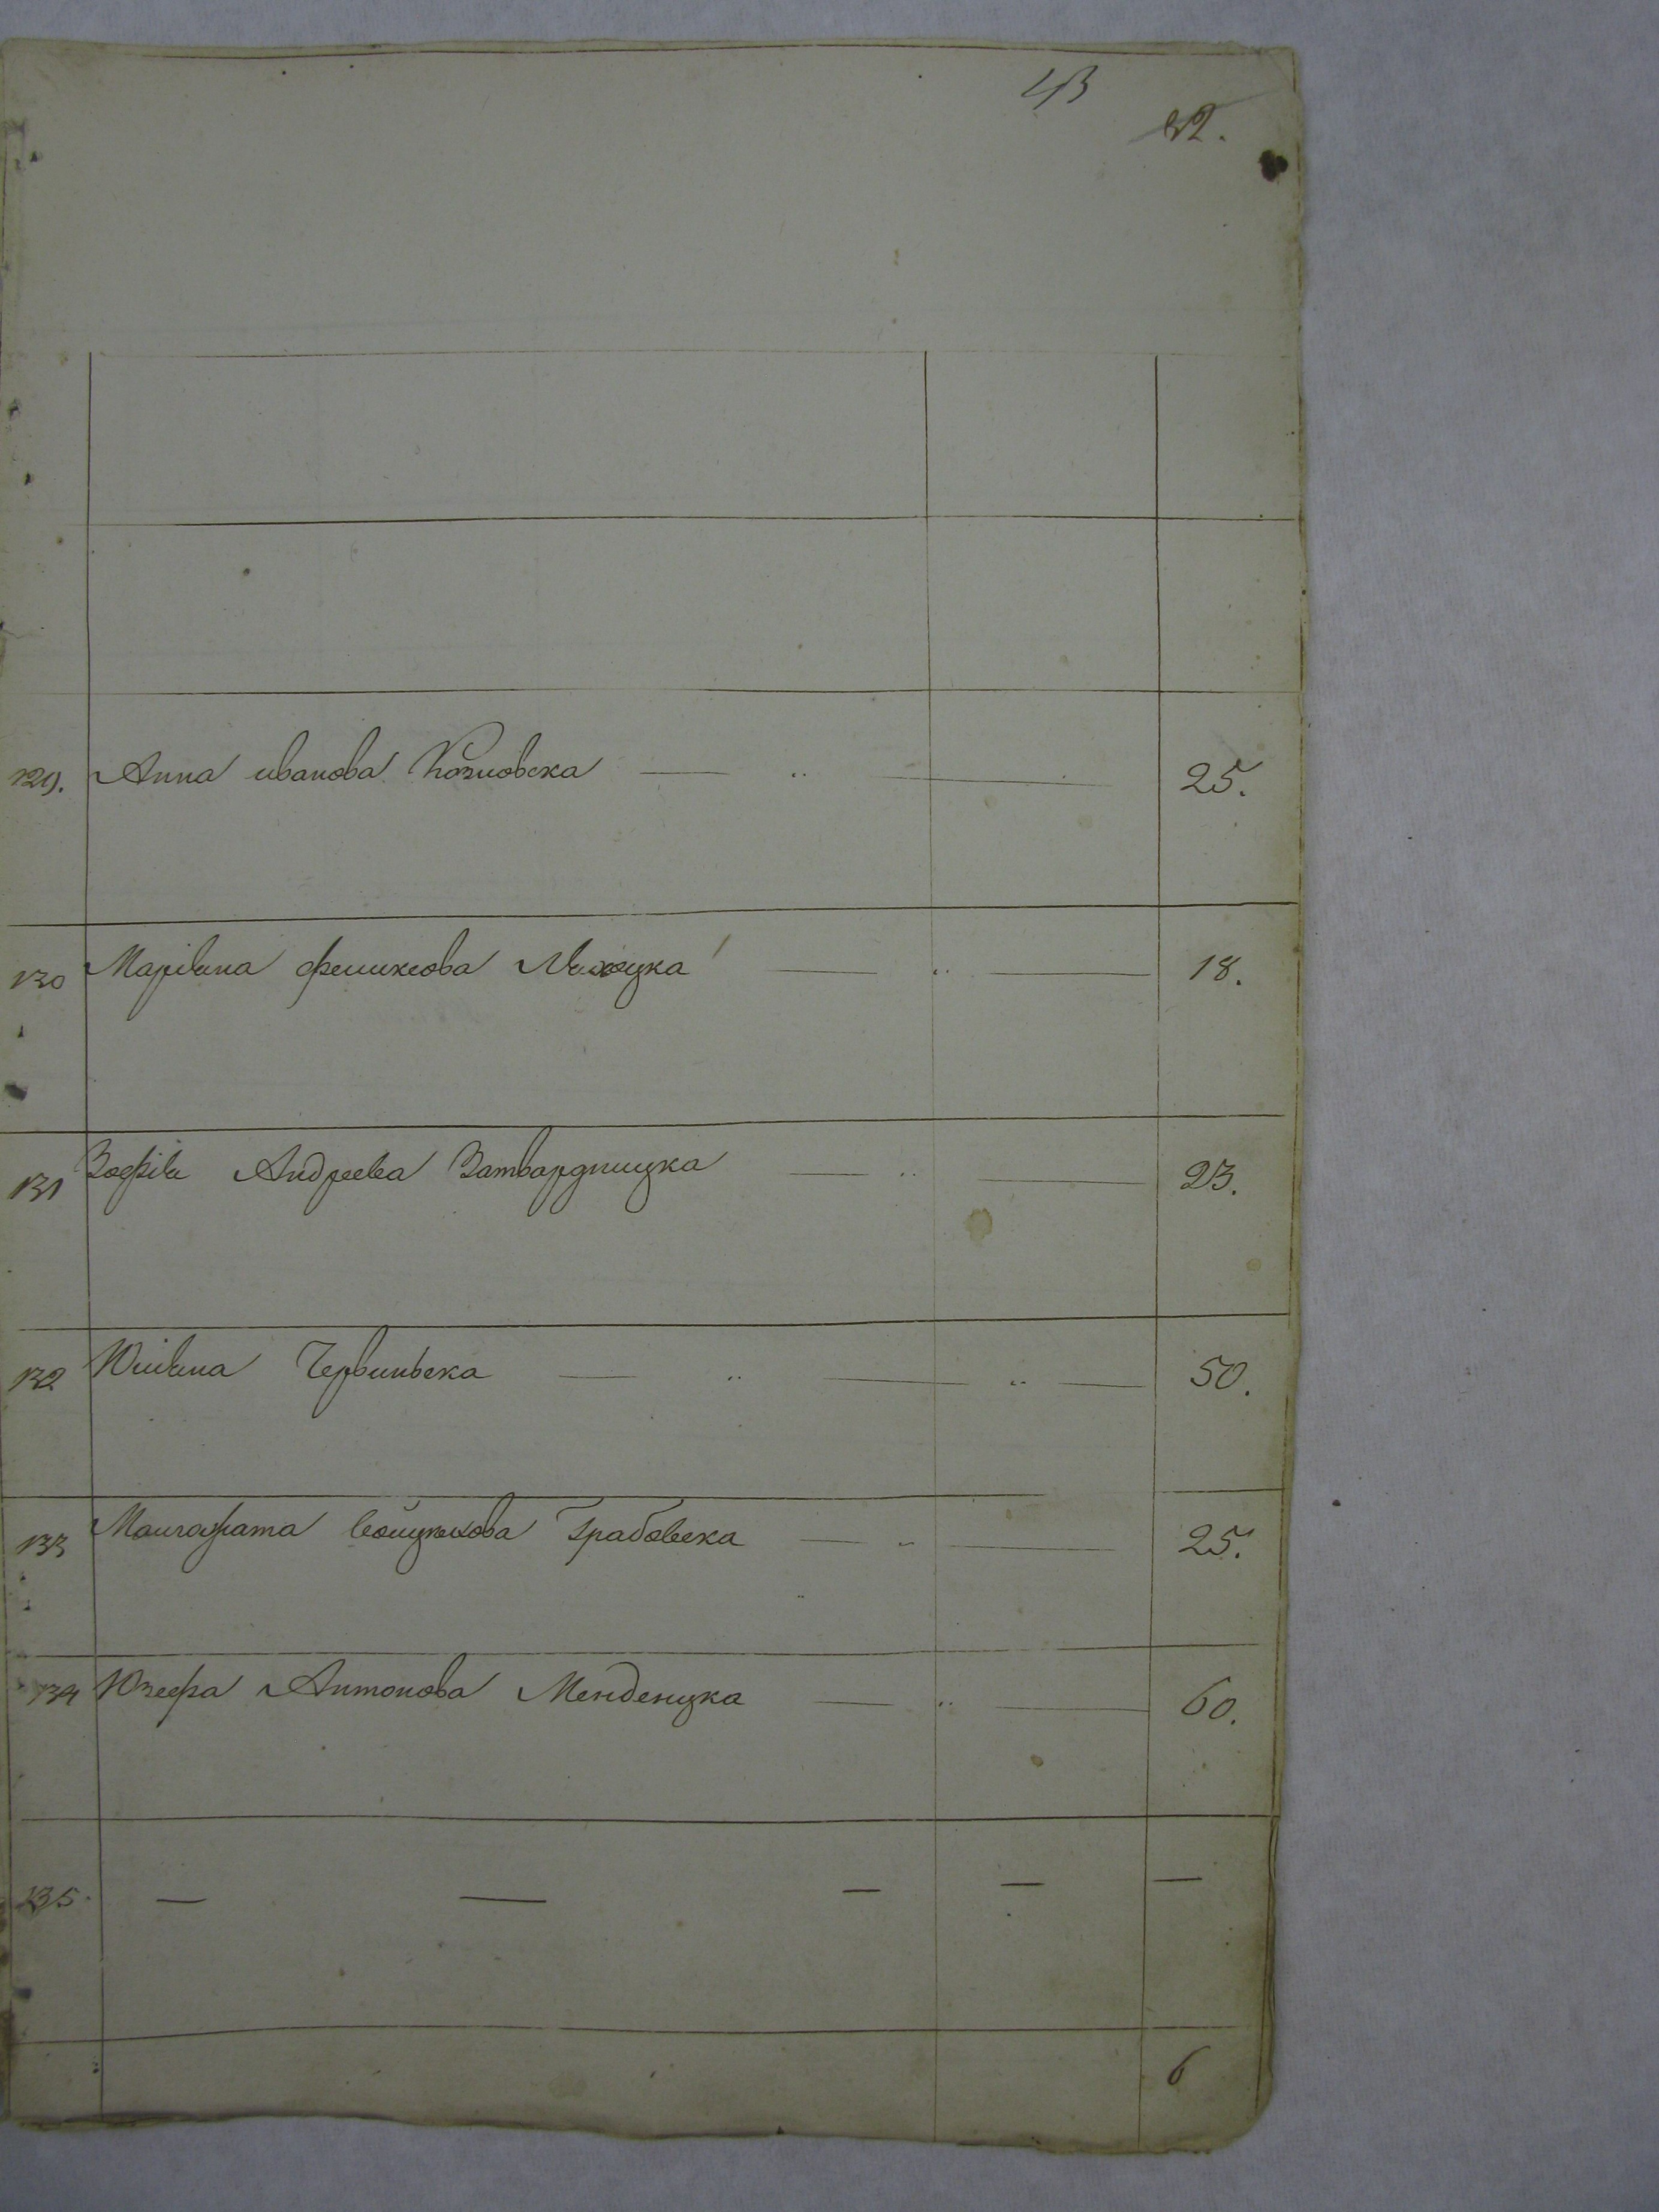 43
32.
129. Анна иванова Козловска — „ — 25.
130 Маріяна феликсова — „ — 18.
131 Зофія Андреева Затвардницка — „ — 23.
132 Юліяна Червиньска — „ — „ — 50.
133 Малгората Грабовска — „ — 25.
134 Юзефа Антонова Менденцка — „ — 60.
135. — — — — —
6